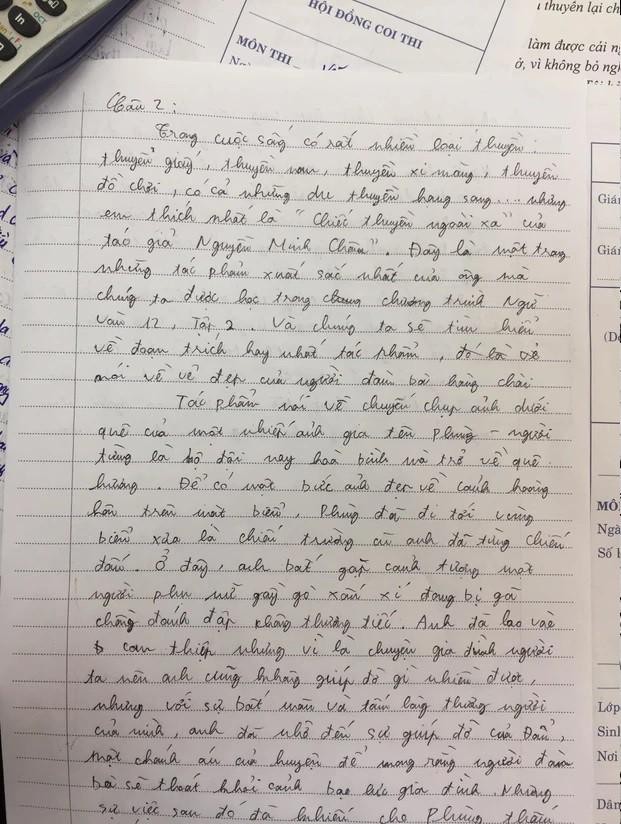 HỘI ĐỒNG COI THI
MÔN THI
ı thuyền lại ch
làm được cái ng
ở, vì không bỏ ngh
Câu 2 :
Trong cuộc sống có rất nhiều loại thuyền :
thuyền giấy, thuyền nan, thuyền xi măng, thuyền
đồ chơi, có cả những du thuyền hạng sang .... nhưng
em thích nhất là "Chiếc thuyền ngoài xa" của
tác giả Nguyễn Minh Châu". Đây là một trong
những tác phẩm xuất sắc nhất của ông mà
chúng ta được học trong chương trình Ngữ
văn 12, Tập 2. Và chúng ta sẽ tìm hiểu
về đoạn trích hay nhất tác phẩm, đó là
nói về vẻ đẹp của người đàn bà hàng chài
Tác phẩm nói về chuyến chụp ảnh dưới
quê của một nhiếp ảnh gia tên Phùng - người
từng là bộ đội nay hoà bình mà trở về quê
hương. Để có một bức ảnh đẹp về cảnh hoàng
hôn trên mặt biển, Phùng đã đi tới vùng
biển xưa là chiến trường cũ anh đã từng chiến
đấu. Ở đây, anh bắt gặp cảnh tượng một
người phụ nữ gầy gò xấu xí đang bị gã
chồng đánh đập không thương tiếc. Anh đã lao vào
can thiệp nhưng vì là chuyện gia đình người
ta nên anh cũng không giúp đỡ gì nhiều được,
nhưng với sự bất mãn và tấm lòng thương người
của mình, anh đã nhờ đến sự giúp đỡ của Đẩu,
một chánh án của huyện để mong rằng người đàn
bà sẽ thoát khỏi cảnh bạo lực gia đình. Nhưng
sự việc sau đó đã khiến cho Phùng thấm
Giám
Giám
MÔ
Ngà
Số b
Lớp
Sinh
Nơi
Dân